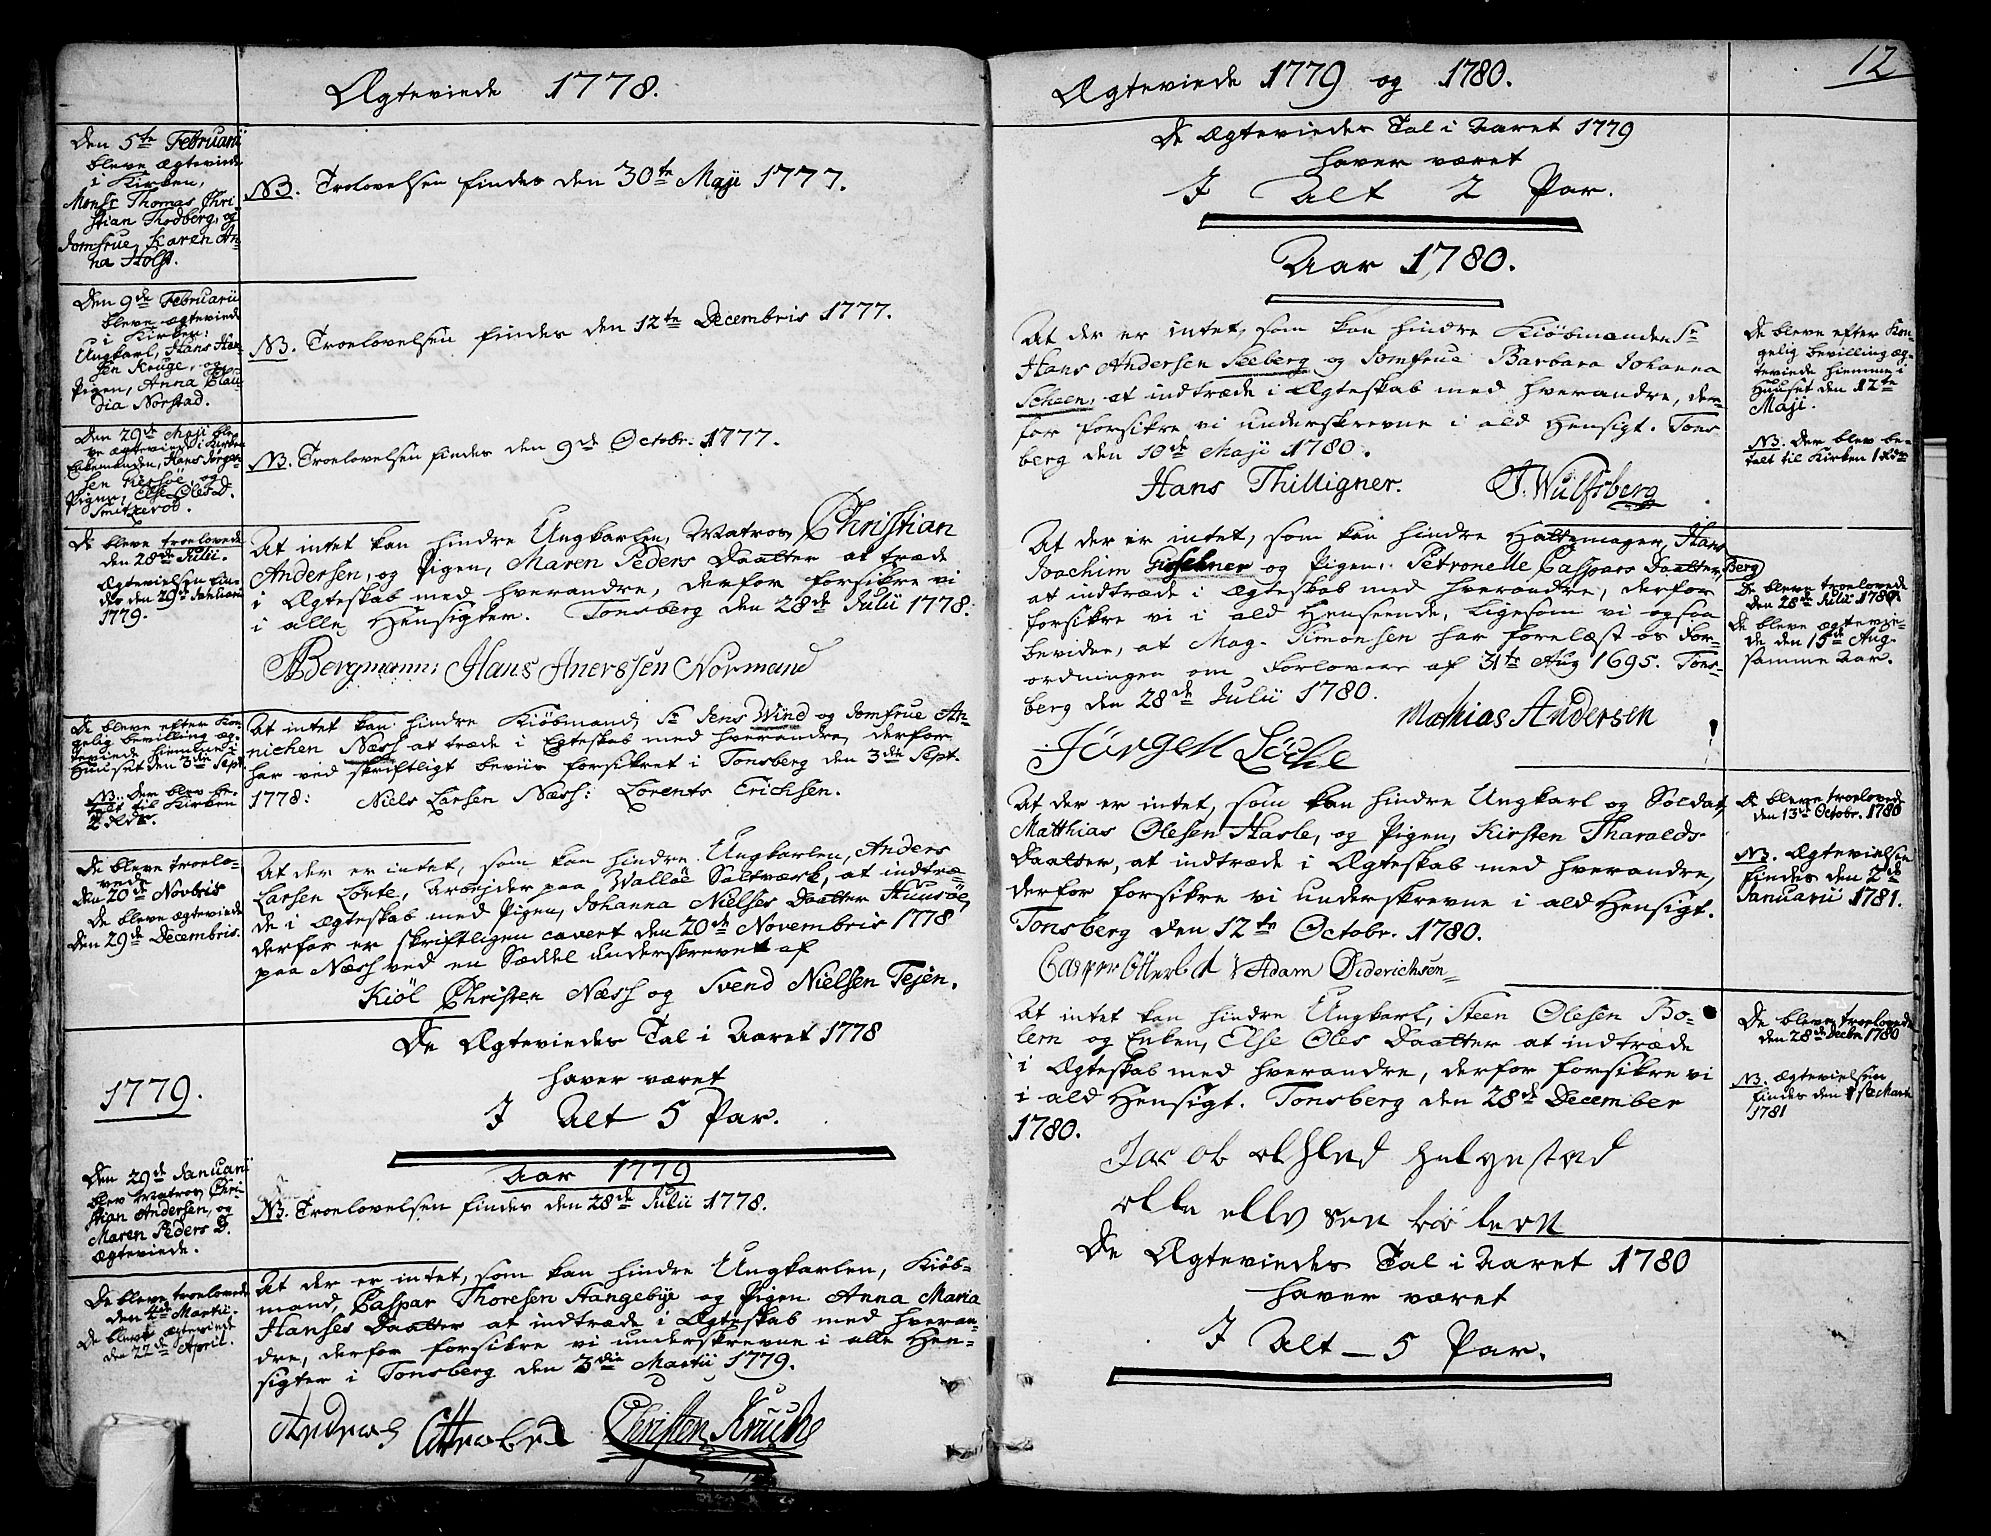 Ægteviede 1778.
Den 5te Februarii
bleve ægteviede
i Kirken,
Monsr Thomas Chri-
stian Thodberg, og
Jomfrue Karen An-
na Holst.
NB. Trolovelsen findes den 30te Maji 1777.
Den 9de Februarii
bleve ægteviede
i Kirken:
Ungkarl, Hans Han-
sen Kruge, og
Pigen, Anna Clau-
dia Norstad.
NB. Troelovelsen findes den 12te Decembris 1777.
Den 29de Maji ble-
ve ægteviede i Kirken
Enkemanden, Hans Jørgen-
sen og
Pigen, Else Olesd.
Smitzerød.
NB. Troelovelsen findes den 9de Octobr. 1777.
De bleve troelovede
den 28de Julii.
Ægtevielsen fin-
des den 29de Januarii
1779.
At intet kan hindre Ungkarlen, Matros, Christian
Andersen, og Pigen, Maren Peders Daatter at træde
i Ægteskab med hverandre, derfor forsikre vi
i alle Hensigter. Tonsberg den 28de Julii 1778.
Bergmann: Hans Anerssen Normand
De bleve efter Kon-
gelig bevilling æg-
teviede hiemme i
Huuset den 3de Sept.
NB. Der blev be-
talt til Kirken
2 Rdr.
At intet kan hindre Kiöbmand, Sr Jens Wind og Jomfrue An-
nichen Næss at træde i Egteskab med hverandre, derfor
har ved skriftligt beviis forsikret i Tonsberg den 3die Sept.
1778: Niels Larsen Næss: Lorents Erichsen.
De bleve troelo-
vede
den 20de Novbris
De bleve ægteviede
den 29de Decembris.
At der er intet, som kan hindre Ungkarlen, Anders
Larsen Lörte, Arbejder paa Walløe Saltværk, at indtræ-
de i Ægteskab med Pigen, Johanna Nielses Daatter Huusöe,
derfor er skriftligen cavert den 20de Novembris 1778
paa Næss ved en Sæddel underskrevet af
Kiöl Christen Næss og Svend Nielsen Tejen.
De Ægteviedes Tal i Aaret 1778
haver været
I Alt 5 Par.
1779.
Aar 1779
Den 29de Januarii
blev Matros, Chri-
stian Andersen, og
Maren Peders D.
ægteviede.
NB. Troelovelsen findes den 28de Julii 1778.
De bleve troelovede
den 4de Martii.
De bleve ægteviede
den 22de April.
At der er intet, som kan hindre Ungkarlen, Kiöb-
mand, Caspar Thoresen Hangebye og Pigen Anna Maria
Hanses Daatter at indtræde i Ægteskab med hveran-
dre, derfor forsikre vi underskrevne i alle Hen-
sigter i Tonsberg den 3die Martii 1779.
Andreas Otterbech Christen Kruche
12
Ægteviede 1779 og 1780.
De Ægteviedes Tal i Aaret 1779
haver været
I Alt 2 Par.
Aar 1780.
At der er intet, som kan hindre Kiöbmanden Sr
Hans Andersen Seeberg og Jomfrue Barbara Johanna
Scheen, at indtræde i Ægteskab med hverandre, der-
for forsikre vi underskrevne i ald Hensigt. Tons
berg den 10de Maji 1780.
Hans Thilligner. Wulfsberg
De bleve efter Kon-
gelig bevilling æg-
teviede hiemme i
Huuset den 12te
Maji.
NB. Der blev be-
talt til Kirken 1 Rdr
At der er intet, som kan hindre Hattemager, Hans
Joachim og Pigen, Petronelle Caspars Daatter, Berg
at indtræde i Ægteskab med hverandre, derfor
forsikre vi i ald Henseende, ligesom vi og saa
bevidne, at Mag. Simonsen har forelæst os For-
ordningen om Forlovere af 31te Aug 1695. Tons-
berg den 28de Julii 1780.
Mathias Andersen
Jörgen
De bleve troelovede
den 28de Julii 1780.
De bleve ægtevie-
de den 15de Aug.
samme Aar.
At der er intet, som kan hindre Ungkarl og Soldat,
Matthias Olesen Hasle, og Pigen, Kirsten Tharalds
Daatter, at indtræde i Ægteskab med hverandre,
derfor forsikre vi underskrevne i ald Hensigt.
Tonsberg den 12te Octobr. 1780.
Casper Otterbech Adam Diderichsen
De bleve troelovede
den 13de Octobr. 1780
NB. Ægtevielsen
findes den 2de
Januarii 1781.
At intet kan hindre Ungkarl, Steen Olesen Bo-
lern og Enken, Else Oles Daatter at indtræde
i Ægteskab med hverandre, derfor forsikre vi
i ald Hensigt. Tonsberg den 28de December
1780.
Jacob
De bleve troelovede
den 28de Decbr. 1780
NB. Ægtevielsen
findes den 1ste Martii
1781
De Ægteviedes Tal i Aaret 1780
haver været
I Alt - 5 Par.